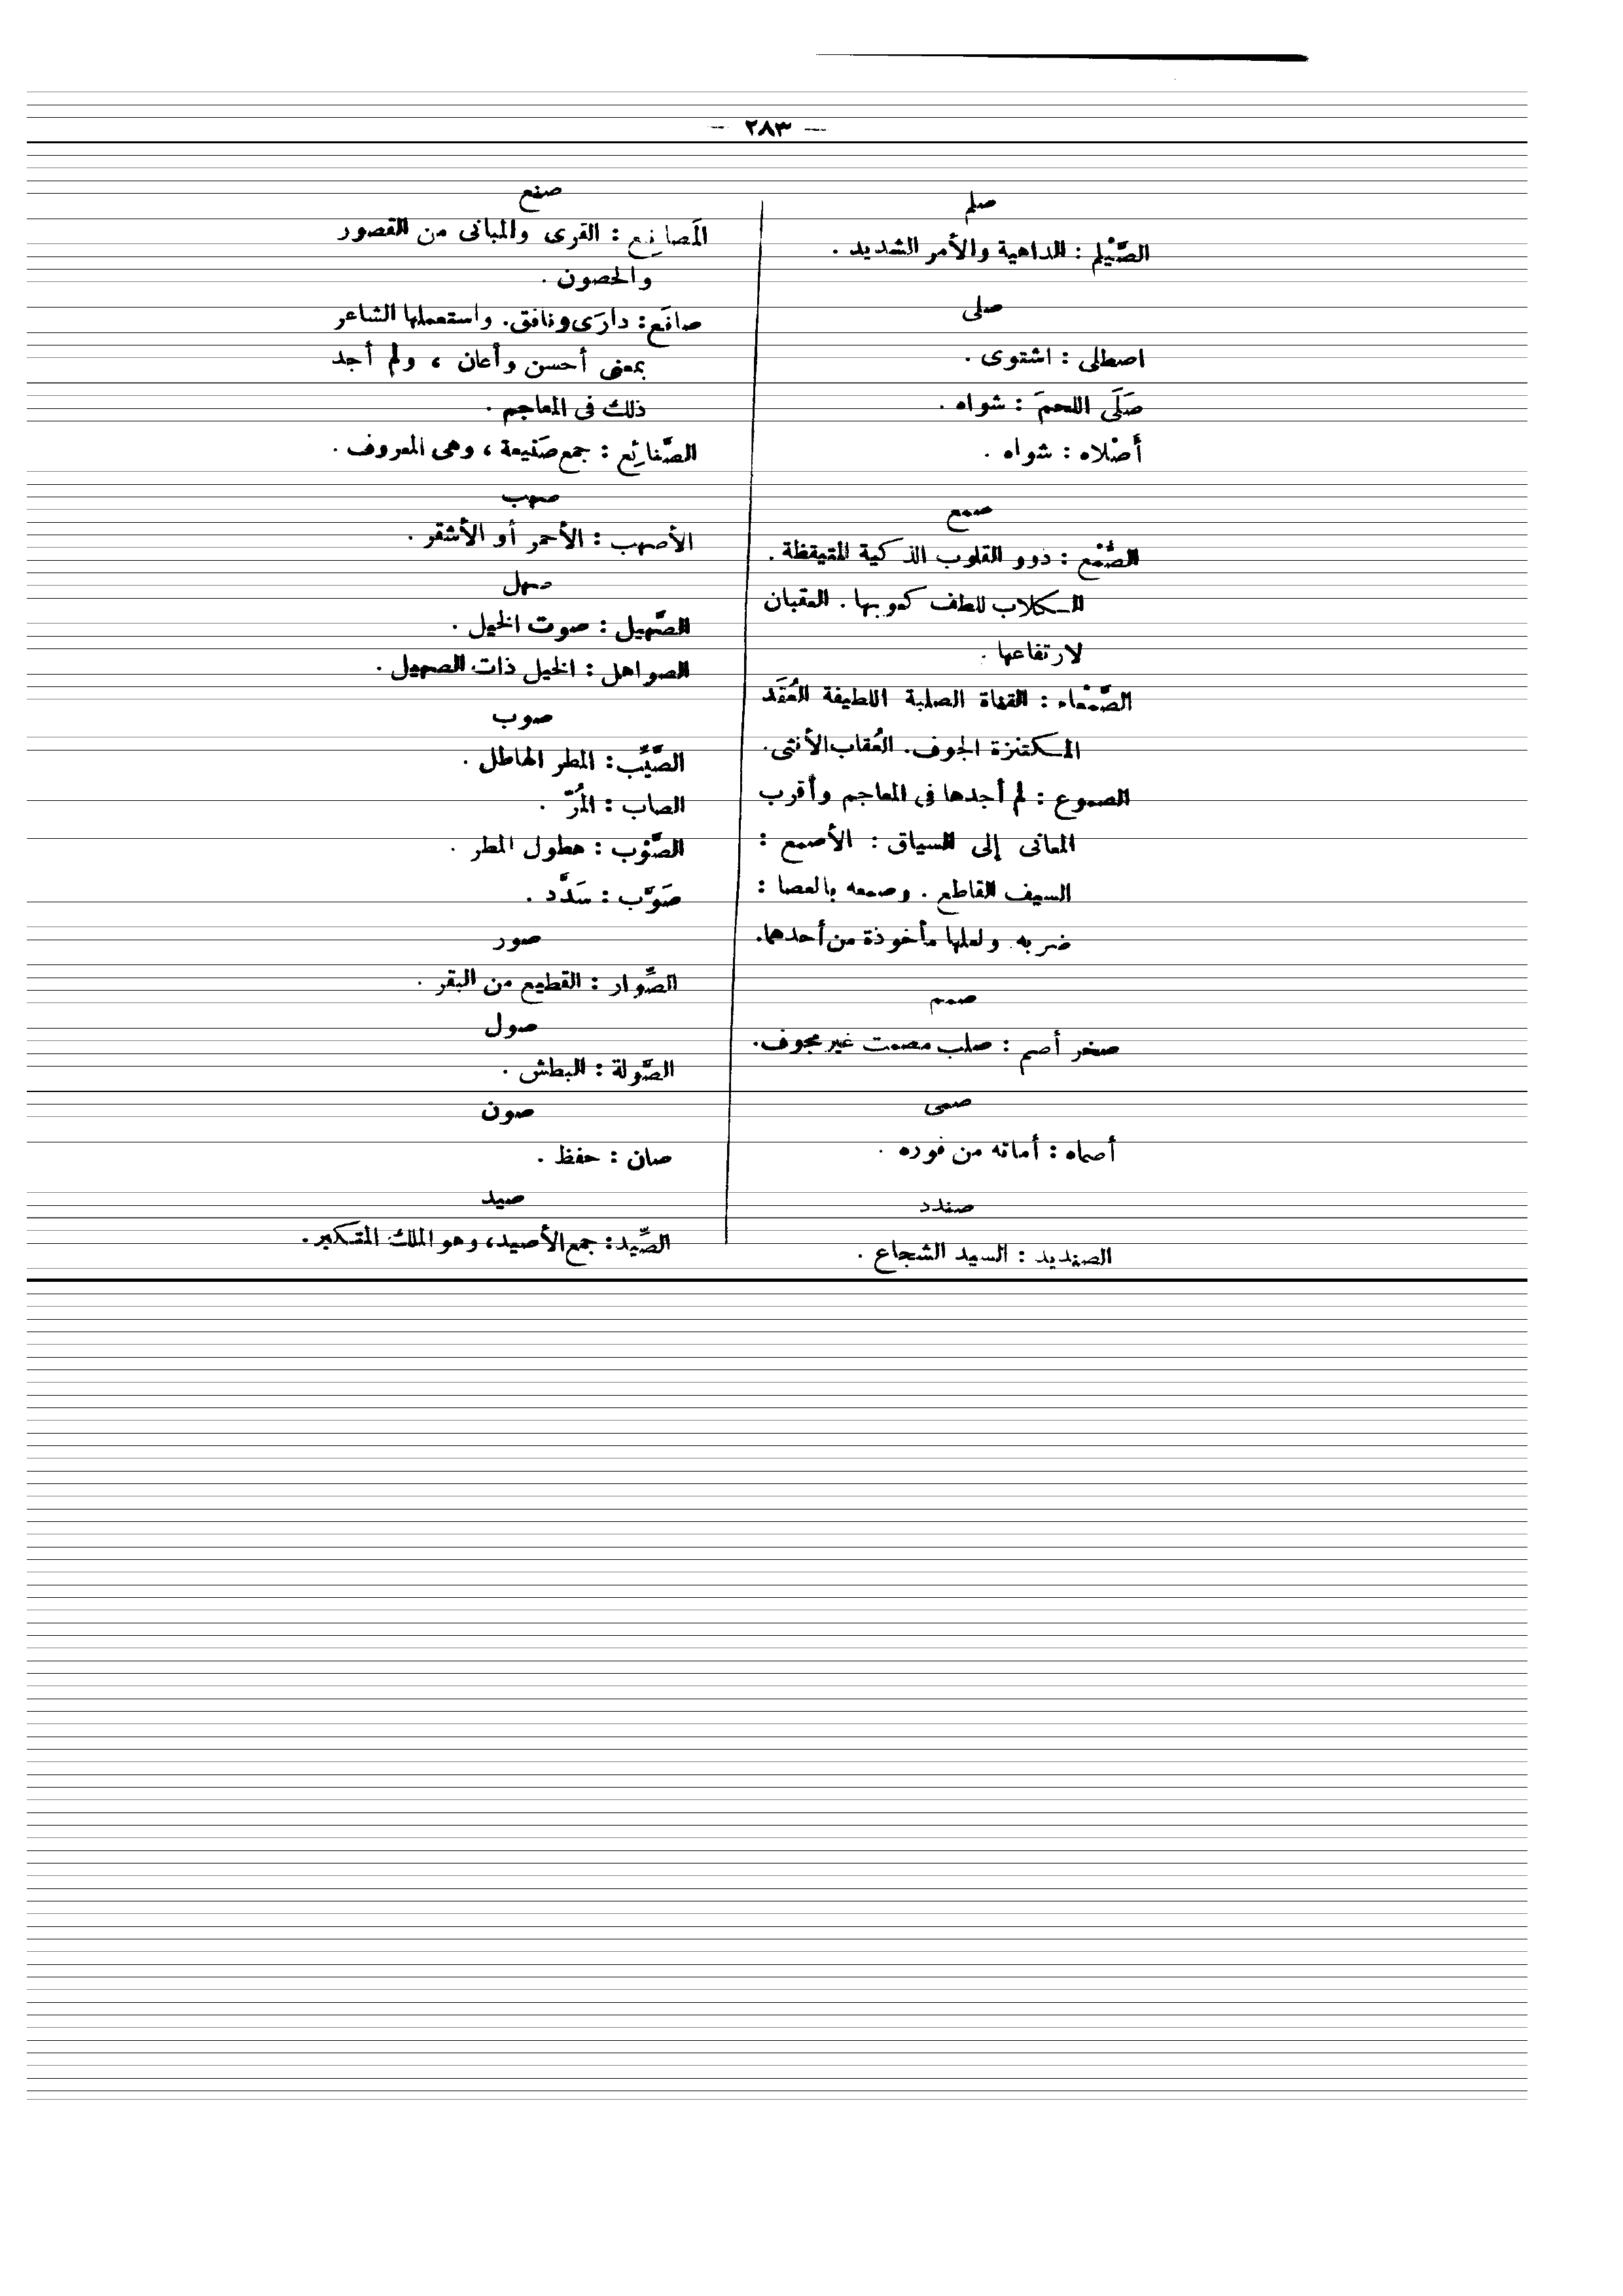 — ٢٨٣ —
صلم
الصَّيْلم : الداهية والأمر الشديد .
صلى
اصطلى : اشتوى .
صَلَى اللحمَ : شواه .
أصْلاه : شواه .
صمع
الصُّمْع : ذوو القلوب الذكية المتيقظة .
الكلاب للطف كعوبها . العقبان
لارتفاعها .
الصَّمْعاء : القناة الصلبة اللطيفة العُقَد
المكتنزة الجوف . العُقاب الأنثى .
الصموع : لم أجدها فى المعاجم وأقرب
المعانى إلى السياق : الأصمع :
السيف القاطع . وصمعه بالعصا :
ضربه . ولعلها مأخوذة من أحدهما .
صمم
صخر أصم : صلب مصمت غير مجوف .
صمى
أصماه : أماته من فوره .
صندد
الصنديد : السيد الشجاع .
صنع
المَصانِع : القرى والمبانى من القصور
والحصون .
صانَع : دارَى ونافق . واستعملها الشاعر
بمعنى أحسن وأعان ، ولم أجد
ذلك فى المعاجم .
الصَّنائِع : جمع صَنيعة ، وهى المعروف .
صهب
الأصهب : الأحمر أو الأشقر .
صهل
الصَّهيل : صوت الخيل .
الصواهل : الخيل ذات الصهيل .
صوب
الصَّيِّب : المطر الهاطل .
الصاب : المُرّ .
الصَّوْب : هطول المطر .
صَوَّب : سَدَّد .
صور
الصِّوار : القطيع من البقر .
صول
الصَّولة : البطش .
صون
صان : حفظ .
صيد
الصِّيد : جمع الأصيد ، وهو الملك المتكبر .